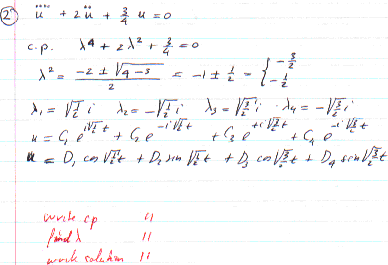 ② u⃜ + 2ü + 3/4 u = 0
c.p. λ⁴ + 2λ² + 3/4 = 0
λ² = (-2 ± √(4-3))/2 = -1 ± 1/2 = { -3/2, -1/2
λ₁ = √(1/2) i λ₂ = -√(1/2) i λ₃ = √(3/2) i · λ₄ = -√(3/2) i
u = C₁ e^(i√(1/2) t) + C₂ e^(-i√(1/2) t) + C₃ e^(+i√(3/2) t) + C₄ e^(-i√(3/2) t)
u = D₁ cos √(1/2) t + D₂ sin √(1/2) t + D₃ cos √(3/2) t + D₄ sin √(3/2) t
write cp 11
find λ 11
write solution 11